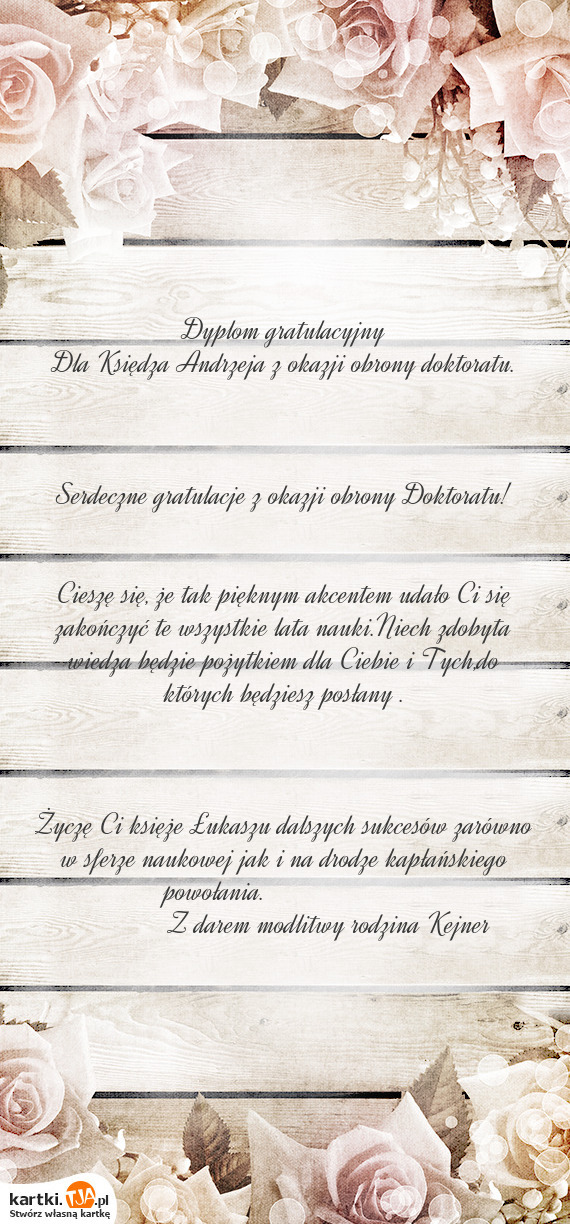 Dyplom gratulacyjny
Dla Księdza Andrzeja z okazji obrony doktoratu.
Serdeczne gratulacje z okazji obrony Doktoratu!
Cieszę się, że tak pięknym akcentem udało Ci się
zakończyć te wszystkie lata nauki.Niech zdobyta
wiedza będzie pożytkiem dla Ciebie i Tych,do
których będziesz posłany .
Życzę Ci księże Łukaszu dalszych sukcesów zarówno
w sferze naukowej jak i na drodze kapłańskiego
powołania.
Z darem modlitwy rodzina Kejner
kartki.TJA.pl
Stwórz własną kartkę